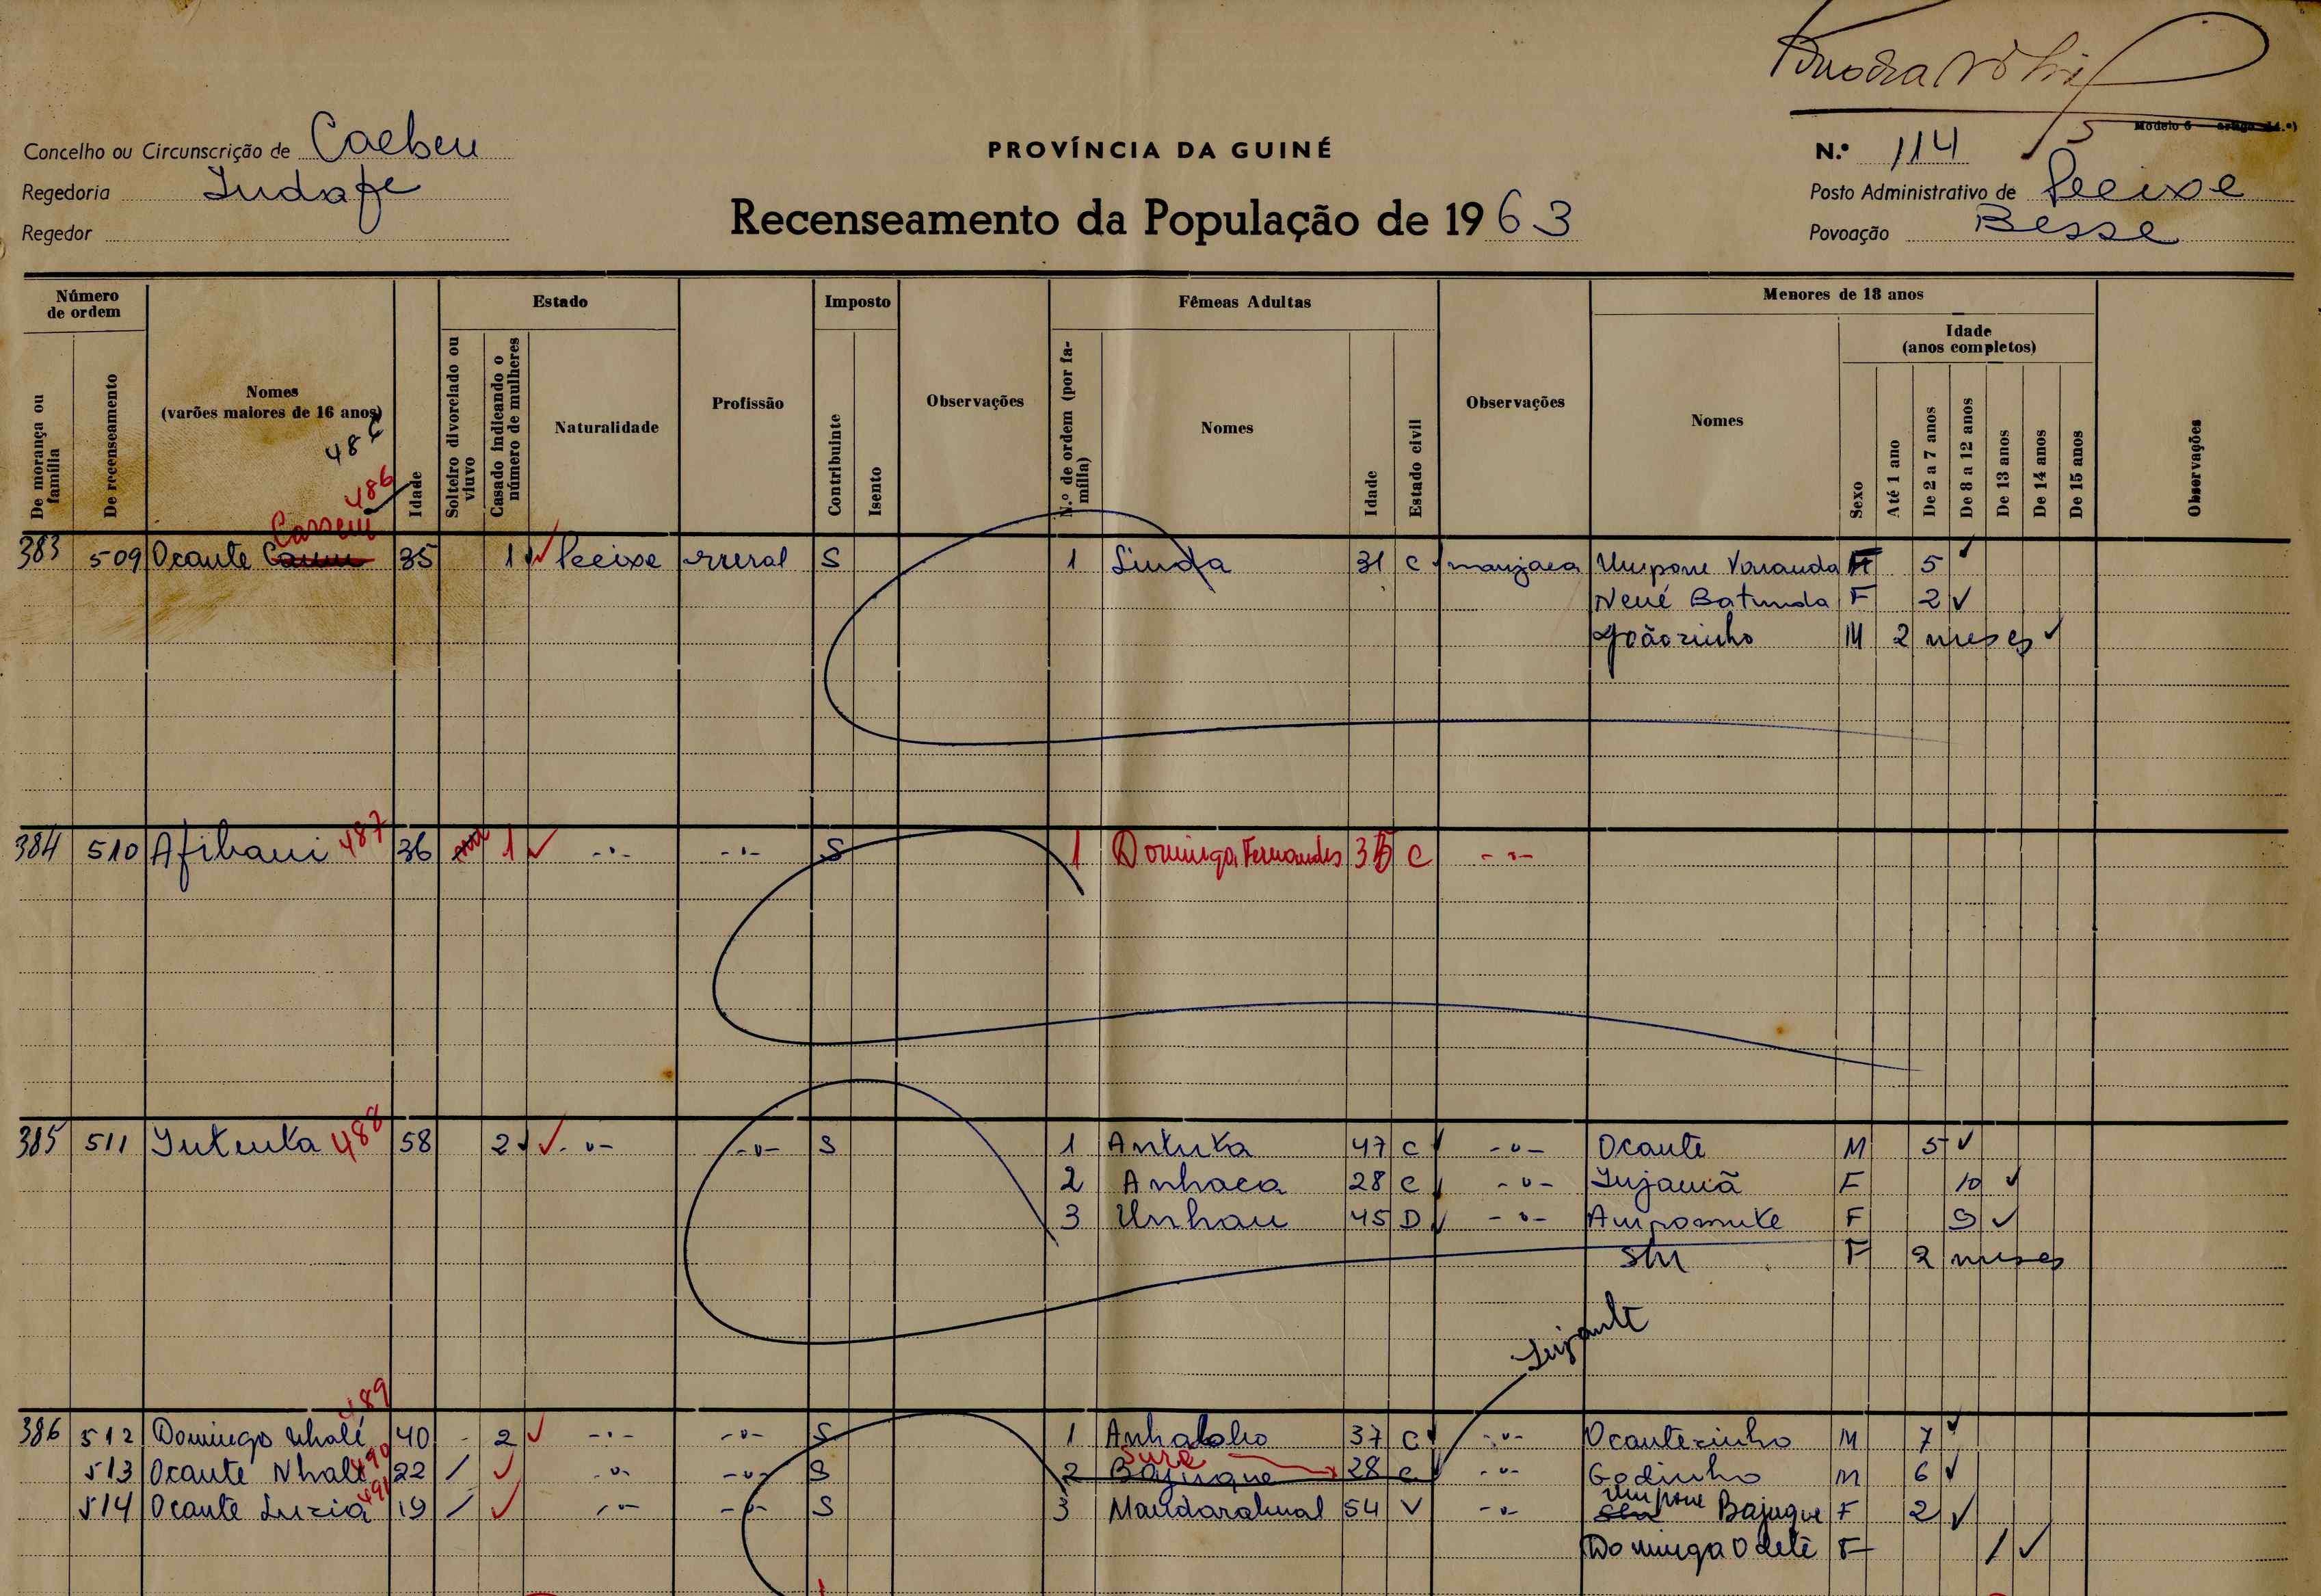 Modelo 6
Concelho ou Circunscrição de Caebeu
PROVÍNCIA DA GUINÉ
N.º 114
Regedoria Indafe
Recenseamento da População de 1963
Posto Administrativo de Pecixe
Regedor
Povoação Besse
Número de ordem
Estado
Imposto
Fêmeas Adultas
Menores de 18 anos
Idade (anos completos)
De morança ou família
De recenseamento
Nomes (varões maiores de 16 anos)
Idade
Solteiro divorciado ou viuvo
Casado indicando o número de mulheres
Naturalidade
Profissão
Contribuinte
Isento
Observações
N.º de ordem (por família)
Nomes
Idade
Estado civil
Observações
Nomes
Sexo
Até 1 ano
De 2 a 7 anos
De 8 a 12 anos
De 13 anos
De 14 anos
De 15 anos
Observações
486
Cassem
383 509 Ocante 35 1 Pecixe rural S 1 Linda 31 C manjaca Umpone Varanda F 5
Nené Batunda F 2
Joãozinho M 2 meses
384 510 Afibani 487 36 1 -"- -"- S 1 Domingas Fernandes C -"-
385 511 Intenta 488 58 2 -"- -"- S 1 Antuta 47 C -"- Ocante M 5
2 Anhaca 28 C -"- Injamã F 10
3 Unhau 45 D -"- Ampomute F 9
F 2 meses
489
386 512 Domingo Nhalé 40 2 -"- -"- S 1 Anhaloho 37 C -"- Ocantezinho M 7
Sure
513 Ocante Nhalé 490 22 / -"- -"- S 2 Bajuque 28 C -"- Godinho M 6
514 Ocante Luzia 491 19 / -"- -"- S 3 Mandarahual 54 V -"- Umpone Bajuque F 2
Dominga Odete F /